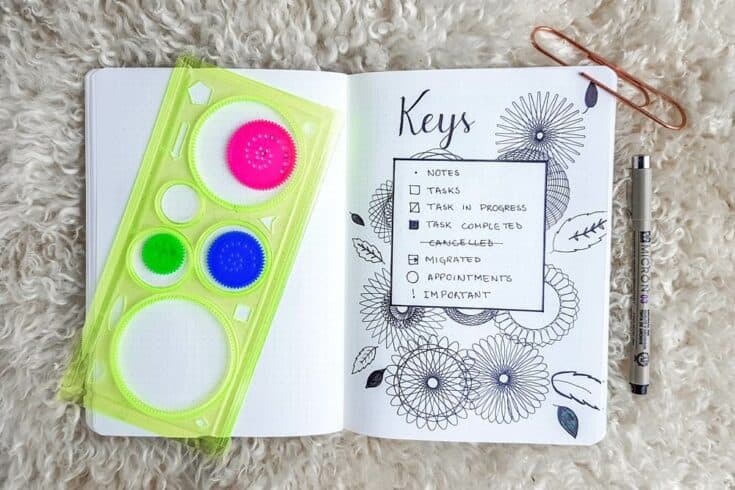 Keys
· NOTES
TASKS
TASK IN PROGRESS
TASK COMPLETED
CANCELLED
MIGRATED
APPOINTMENTS
! IMPORTANT
MICRON